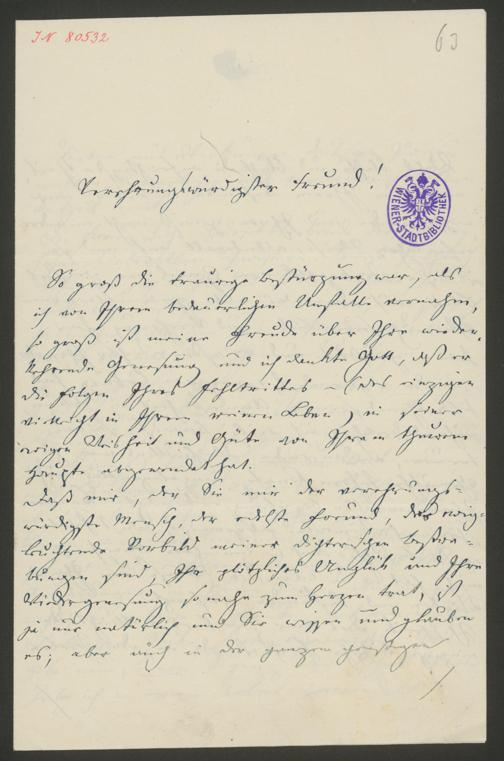 IN 80532
63
Verehrungswürdigster Freund!
WIENER-STADTBIBLIOTHEK
So groß die traurige Bestürzung war, als
ich von Ihrem bedauerlichen Unfalle vernahm,
so groß ist meine Freude über Ihre wieder-
kehrende Genesung und ich dankte Gott, daß er
die Folgen Ihres Fehltrittes – (des einzigen
vielleicht in Ihrem reinen Leben) in seiner
ewigen Weisheit und Güte von Ihrem theuren
Haupte abgewendet hat.
Daß mir, der Sie mir der verehrungs-
würdigste Mensch, der edelste Freund, das ewig-
leuchtende Vorbild meiner dichterischen Bestre-
bungen sind, Ihr plötzliches Unglück und Ihre
Wiedergenesung so nahe zum Herzen trat, ist
ja nur natürlich und Sie wissen und glauben
es; aber auch in der ganzen geistigen